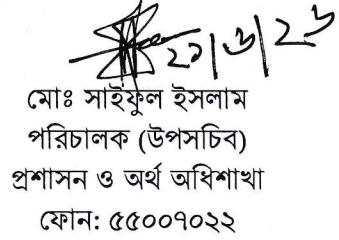 মোঃ সাইফুল ইসলাম
পরিচালক (উপসচিব)
প্রশাসন ও অর্থ অধিশাখা
ফোন: ৫৫০০৭০২২